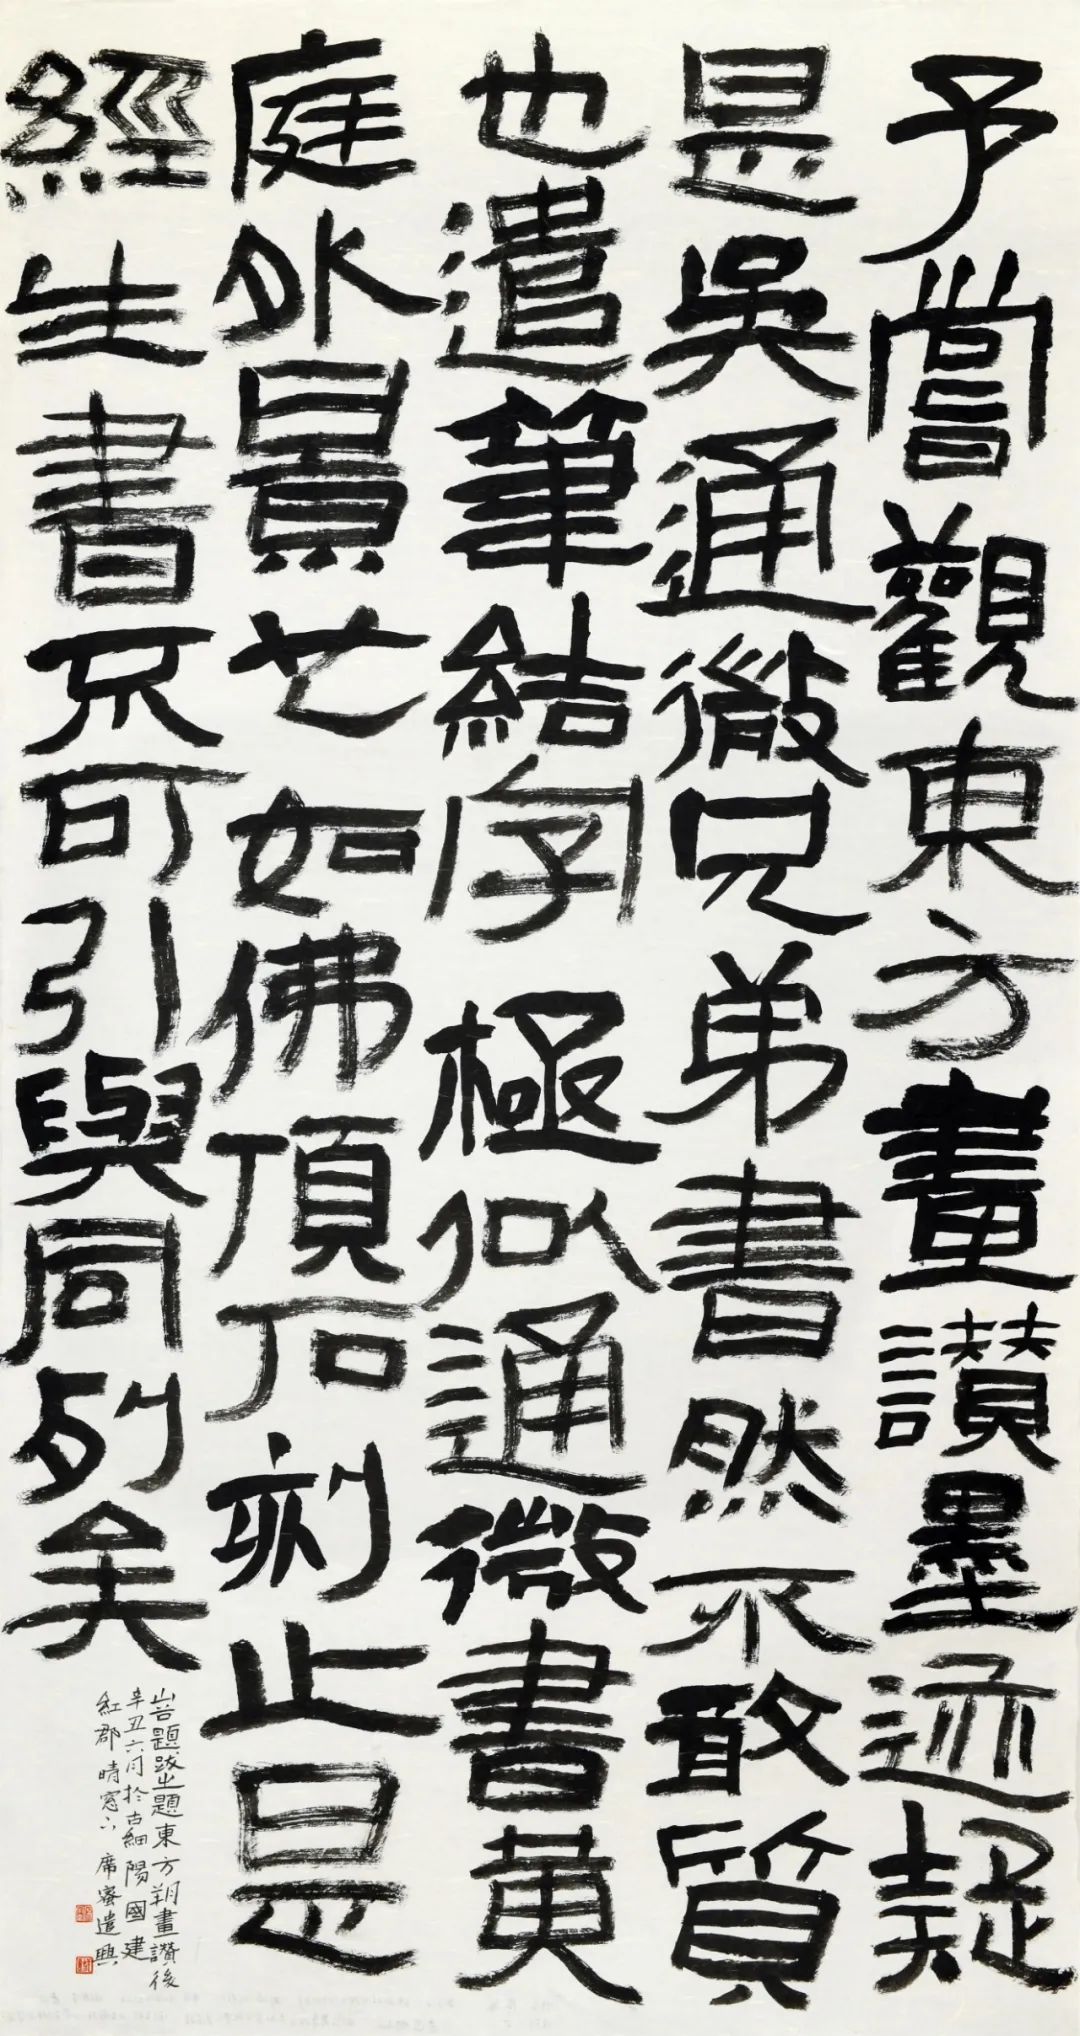 予嘗觀東方畫讚墨迹疑
是吳通微兄弟書然不敢質
也遣筆結字極似通微書黄
庭外景也如佛頂石刻止是
經生書不可引與同列矣
山谷題跋之題東方朔畫讚後
辛丑六月於古細陽國建
紅郡晴窓下席審遣興